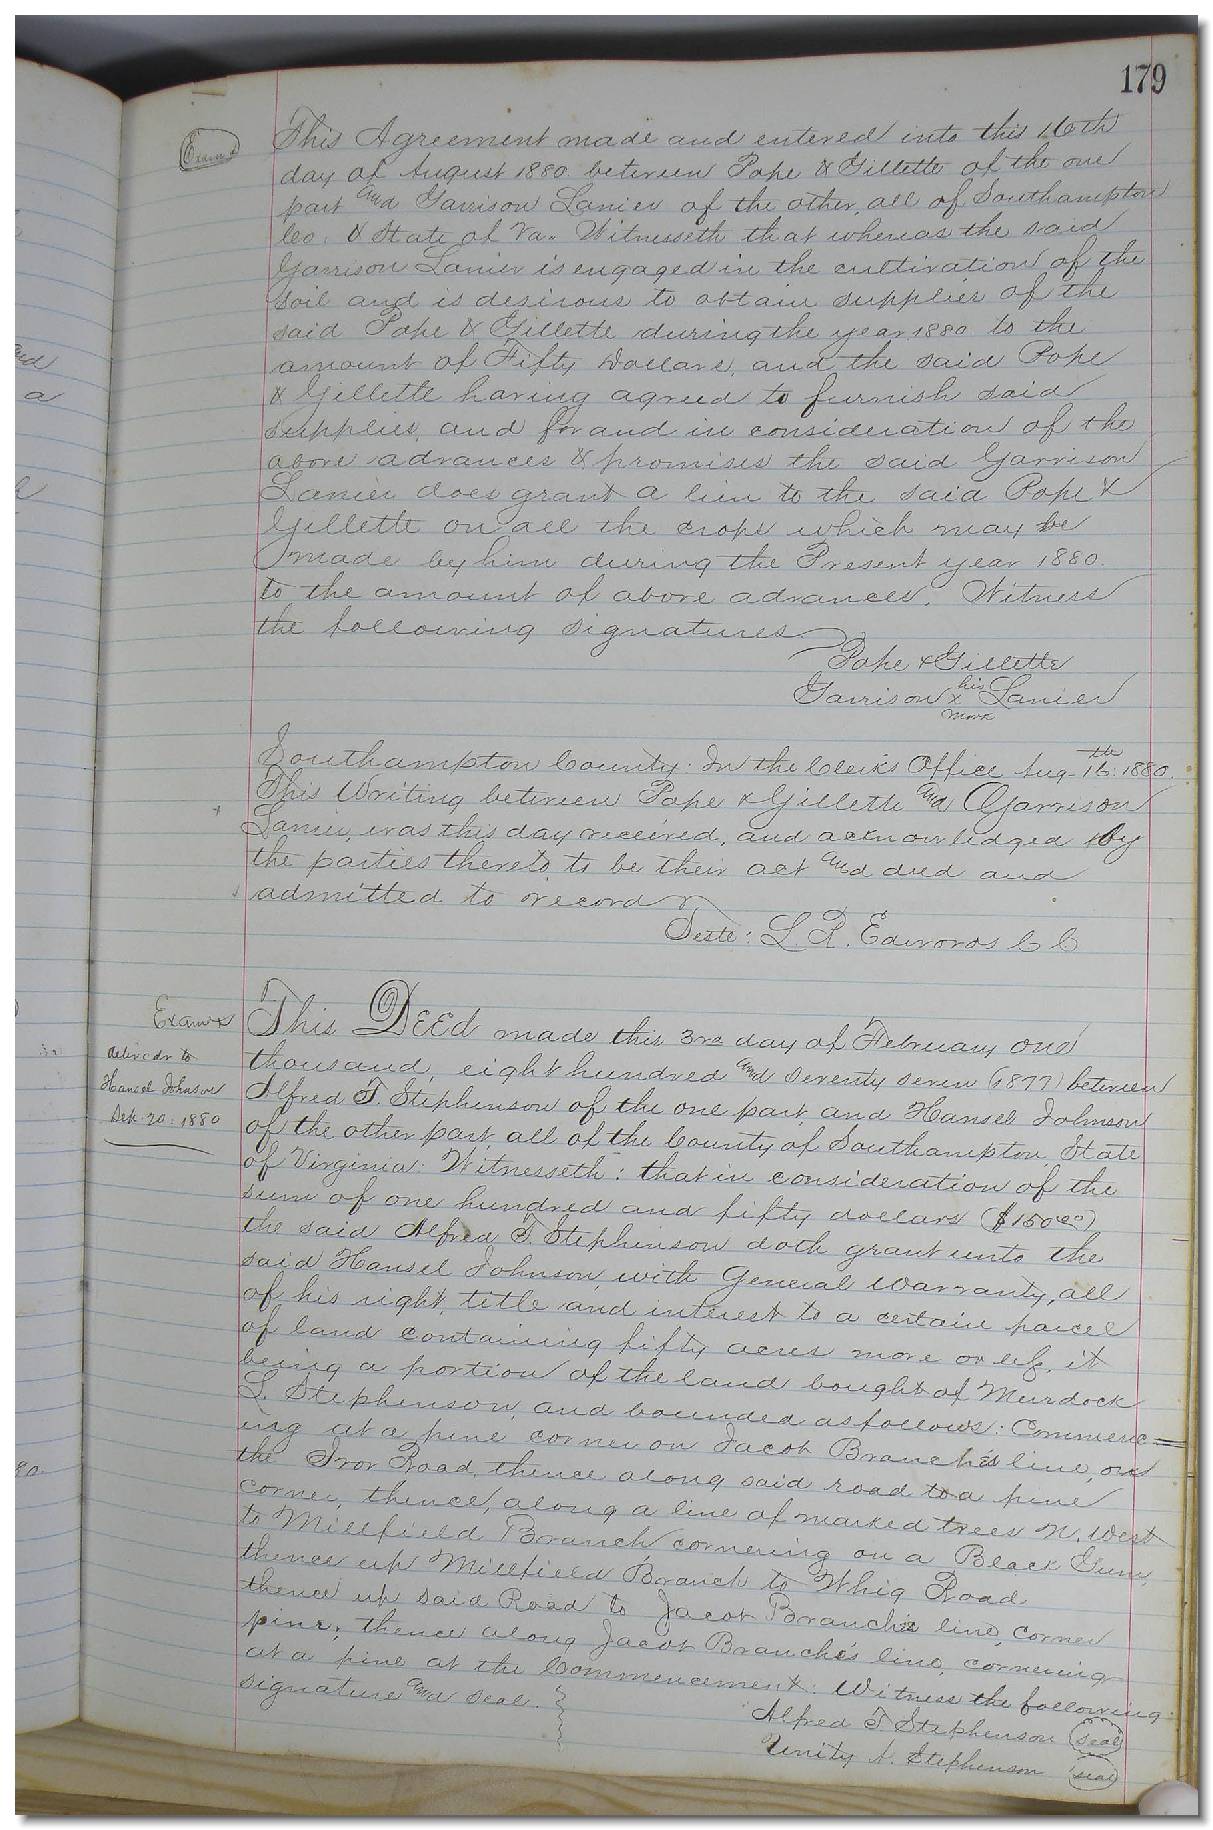 179
Exam'd
This Agreement made and entered into this 16th
day of August 1880 between Pope & Gillette of the one
part and Garrison Lanier of the other, all of Southampton
Co. & State of Va. Witnesseth that whereas the said
Garrison Lanier is engaged in the cultivation of the
soil and is desirous to obtain supplies of the
said Pope & Gillette during the year 1880 to the
amount of Fifty Dollars, and the said Pope
& Gillette having agreed to furnish said
supplies, and for and in consideration of the
above advances & promises the said Garrison
Lanier does grant a lien to the said Pope &
Gillette on all the crops which may be
made by him during the Present year 1880.
to the amount of above advances. Witness
the following signatures
Pope & Gillette
Garrison his x mark Lanier
Southampton County: In the Clerks Office Aug 16th: 1880.
This Writing between Pope & Gillette and Garrison
Lanier, was this day received, and acknowledged by
the parties thereto, to be their act and deed and
admitted to record
Teste: L. R. Edwards C C
Exam'd
deliverdr to
Hansel Johnson
Sep. 20: 1880
This Deed made this 3rd day of February one
thousand, eight hundred and seventy seven (1877) between
Alfred T. Stephenson of the one part, and Hansel Johnson
of the other part all of the County of Southampton, State
of Virginia: Witnesseth: that in consideration of the
sum of one hundred and fifty dollars ($150.00)
the said Alfred T. Stephenson doth grant unto the
said Hansel Johnson, with General Warranty, all
of his right, title and interest to a certain parcel
of land containing fifty acres more or less, it
being a portion of the land bought of Murdock
L. Stephenson, and bounded as follows: Commenc=
ing at a pine corner on Jacob Branch's line, on
the Ivor Road, thence along said road to a pine
corner, thence, along a line of marked trees N. West
to Millfield Branch, cornering on a Black Gum,
thence up Millfield Branch to Whig Road
thence up said Road to Jacob Branch's line, corner
pine; thence along Jacob Branch's line, cornering
at a pine at the Commencement: Witness the following
signature and seal.
Alfred T. Stephenson (seal)
Unity A. Stephenson (seal)